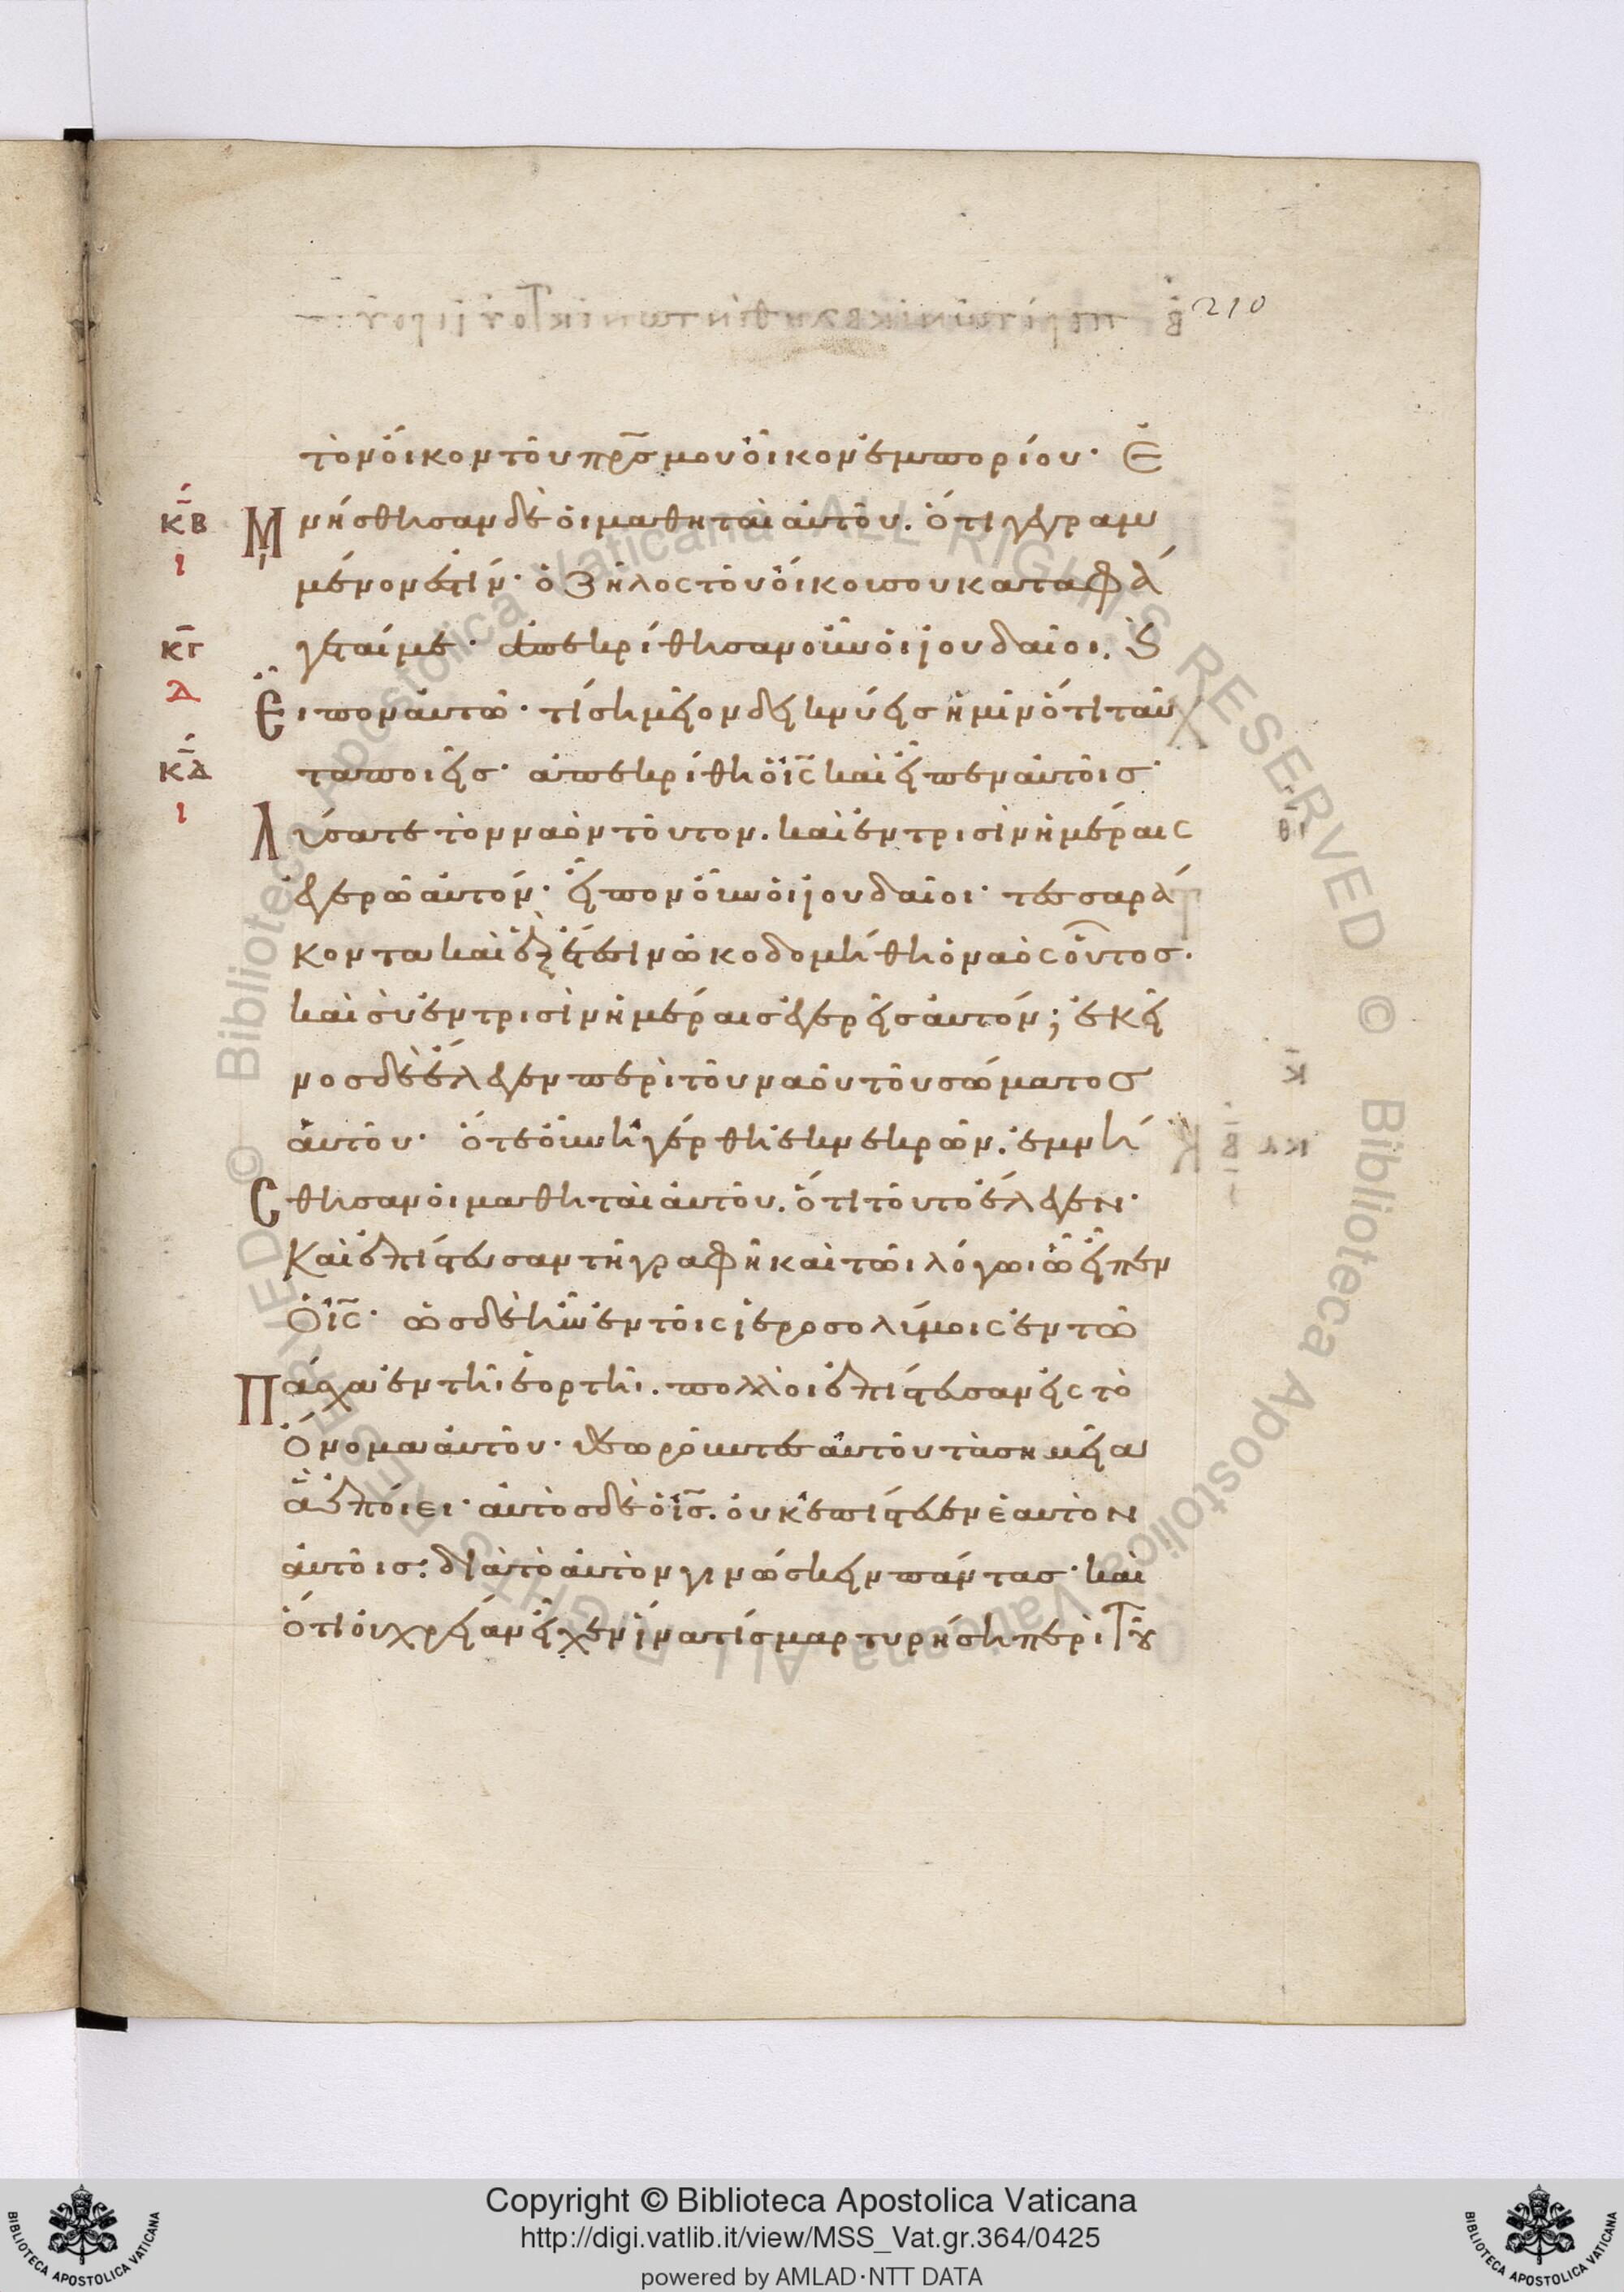 210
τὸν ὄικον τοῦ πρ̅σ μου ὄικον ἐμπορίου· Ἐ
κ̅β Μνήσθησαν δὲ ὁι μαθηταὶ ἀυτοῦ. ὅτι γεγραμ
ι μένον ἐστίν· ὁ ζῆλος τοῦ ὄικου σου καταφά
κ̅γ γεταί με· ἀπεκρίθησαν οὖν ὁι ϊουδαῖοι. ϗ
δ Εἶπον ἀυτῶ· τί σημεῖον δεικνύεισ ἡμῖν ὅτι ταῦ
κ̅δ τα ποιεῖσ· ἀπεκρίθη ὁ ι̅ς καὶ εἶπεν ἀυτοῖσ·
ι Λύσατε τὸν ναὸν τοῦτον. καὶ ἐν τρισὶν ἡμέραις
ἐγερῶ ἀυτόν· εἶπον οὖν ὁι ϊουδαῖοι· τεσσαρά
κοντα καὶ ἓξ ἔτεσιν ὠκοδομήθη ὁ ναὸς οὗτοσ·
καὶ σὺ ἐν τρισὶν ἡμέραισ ἐγερεῖσ ἀυτόν; ἐκεῖ
νοσ δὲ ἔλεγεν περὶ τοῦ ναοῦ τοῦ σώματοσ
ἀυτοῦ· ὅτε οὖν ἠγέρθη ἐκ νεκρῶν. ἐμνή
Cθησαν ὁι μαθηταὶ ἀυτοῦ. ὅτι τοῦτο ἔλεγεν·
Καὶ ἐπίστευσαν τῆ γραφῆ καὶ τῶι λόγωι ὧ εἶπεν
Ὁ ι̅ς· ὡσ δὲ ἦν ἐν τοῖς ϊεροσολύμοις ἐν τῶ
Πάσχα ἐν τῆι ἑορτῆι. πολλοὶ ἐπίστευσαν εἰς τὸ
Ὄνομα ἀυτοῦ· θεωροῦντεσ ἀυτοῦ τὰ σημεῖα
ἃ ἐποίει· ἀυτὸσ δὲ ὁ ι̅σ. ὀυκ ἐπίστευεν ἑαυτὸν
ἀυτοῖσ. διὰ τὸ ἀυτὸν γινώσκειν πάντασ· καὶ
ὅτι ὀυ χρείαν εἶχεν ἵνα τίσ μαρτυρήση περὶ τοῦ
Copyright © Biblioteca Apostolica Vaticana
http://digi.vatlib.it/view/MSS_Vat.gr.364/0425
powered by AMLAD·NTT DATA